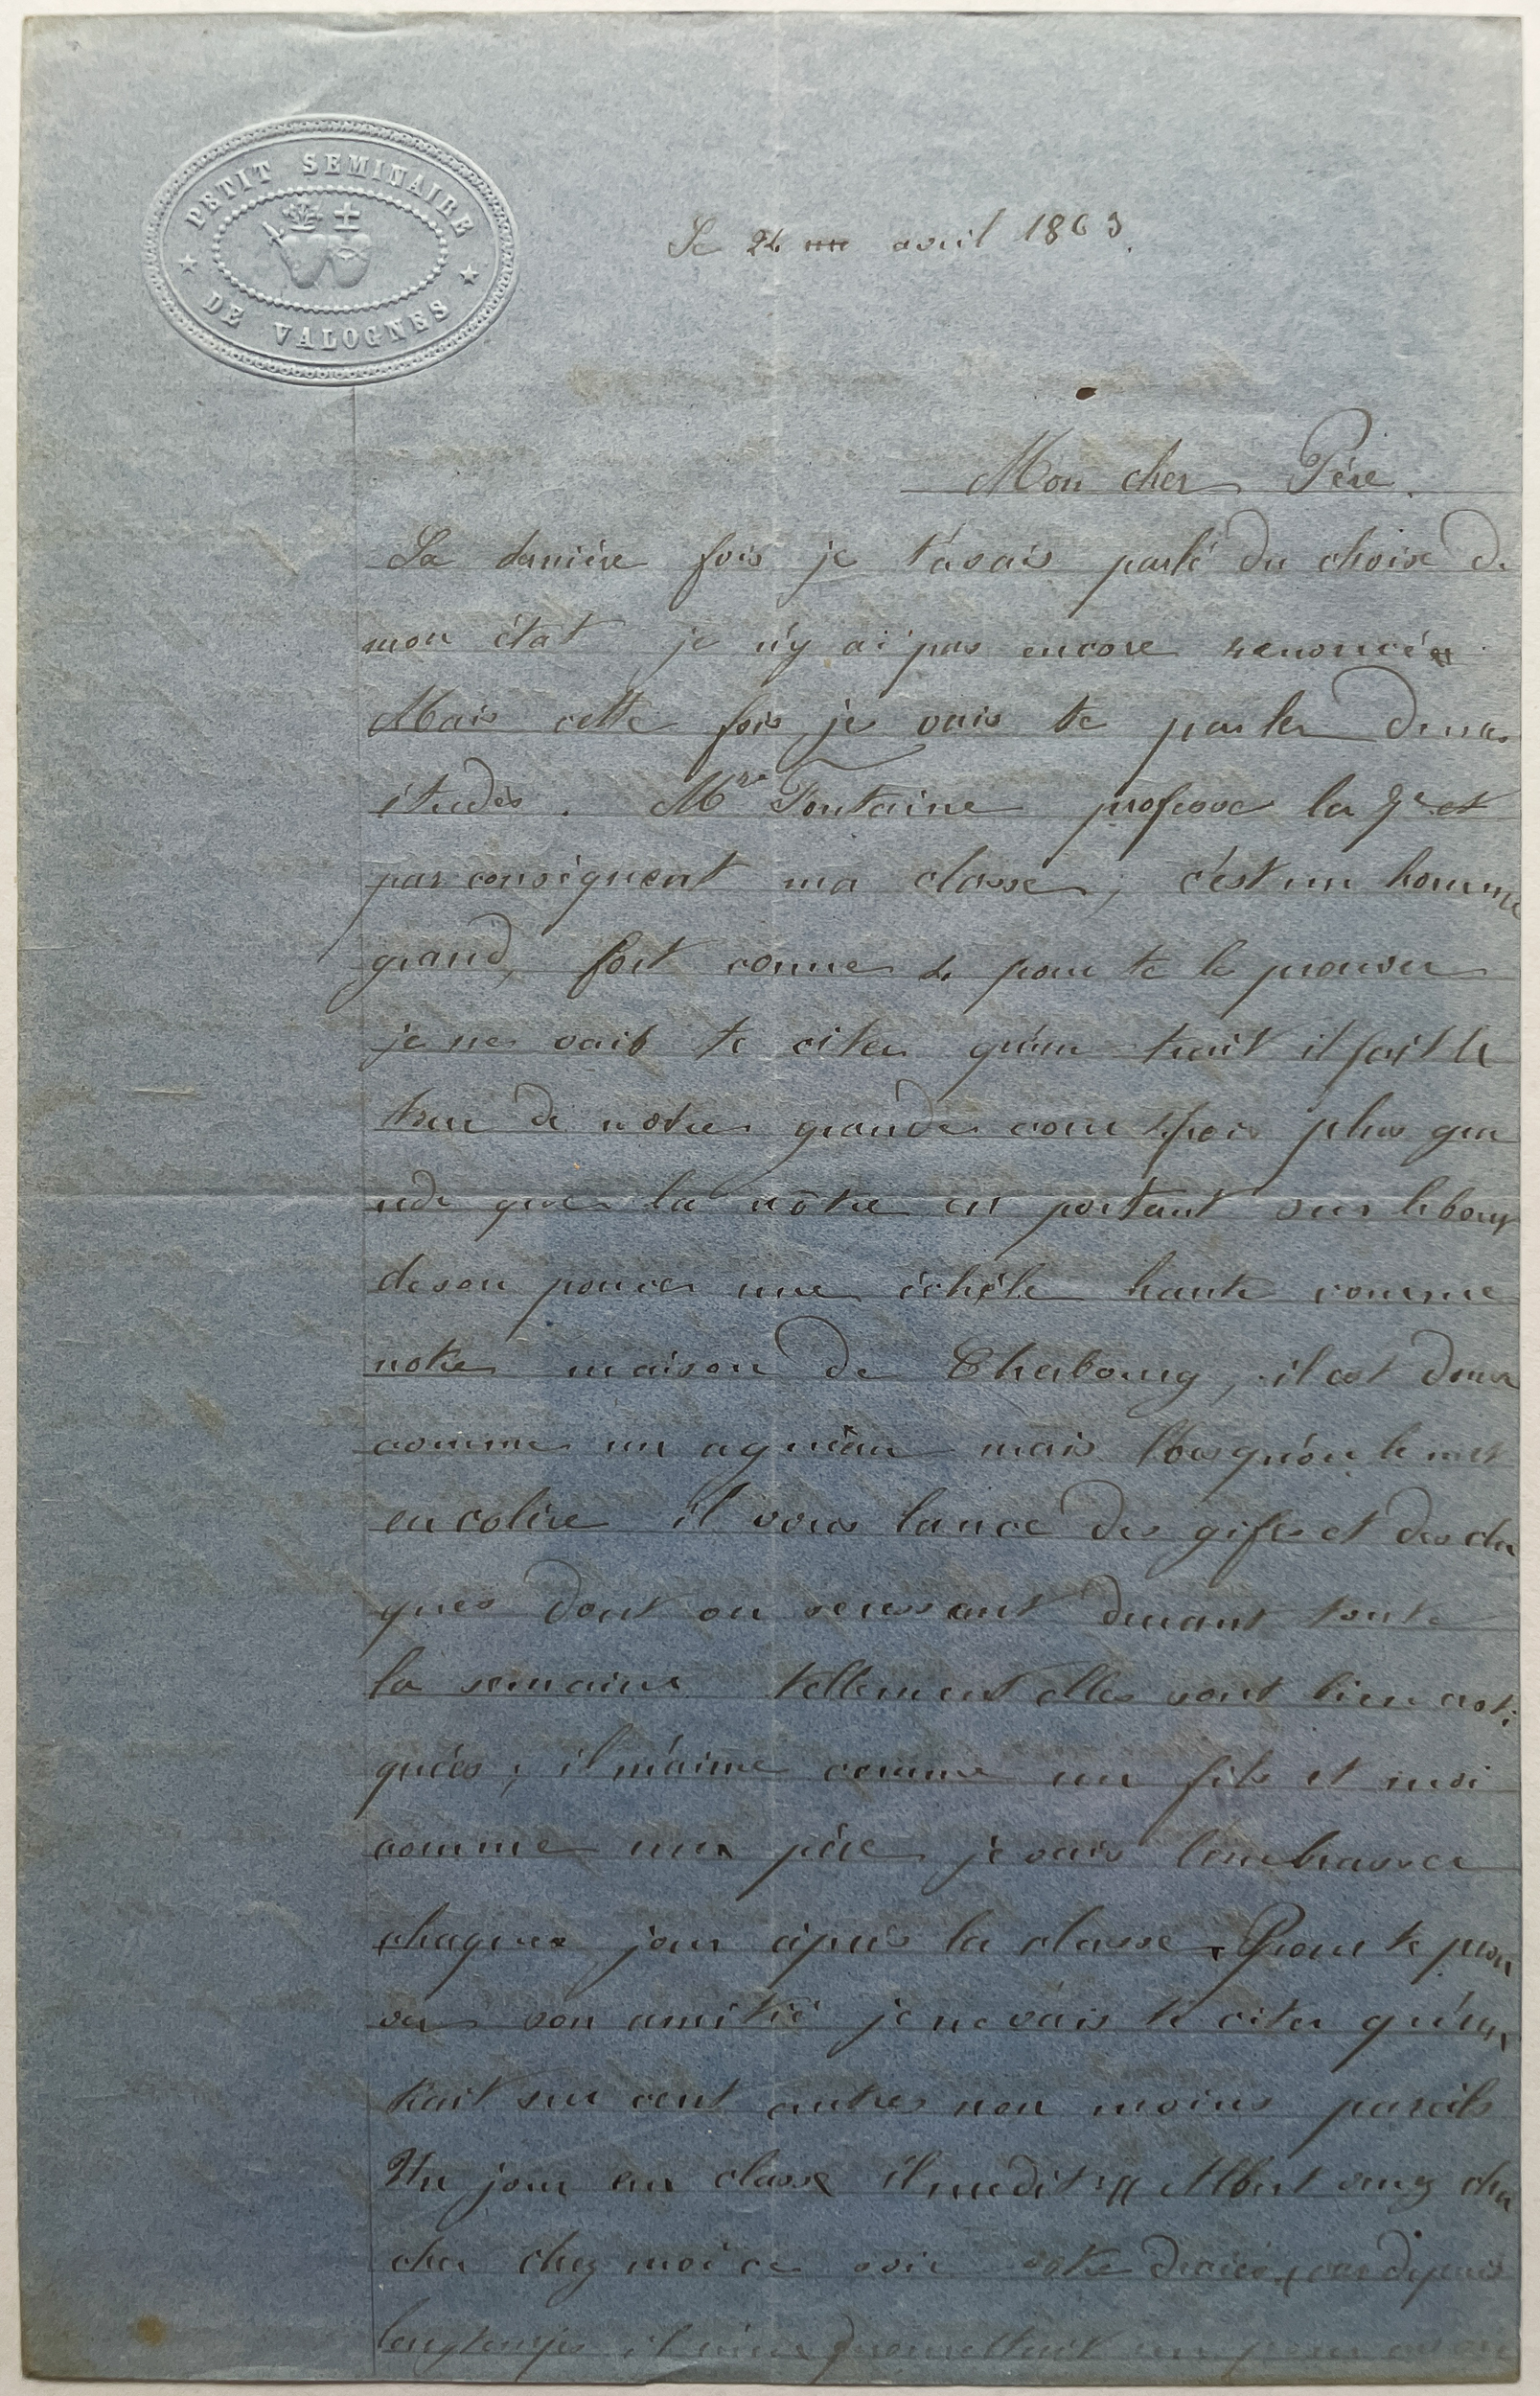 PETIT SEMINAIRE
DE VALOGNES
Le 24 avril 1863.
Mon cher Père.
La dernière fois je t'avais parlé du choix de
mon état je n'y ai pas encore renoncé
Mais cette fois je vais te parler de mes
études. Mr Fontaine professe la 7e et
par conséquent ma classe ; c'est un homme
grand, fort comme 4 pour te le prouver
je ne vais te citer qu'un trait il fait le
tour de notre grande cour fois plus gra
nde que la nôtre en portant sur le bout
de son pouce une échèle haute comme
notre maison de Cherbourg, il est doux
comme un agneau mais lorsqu'on le met
en colère il vous lance des gifles et des cla
ques dont on se ressent durant toute
la semaine tellement elles sont bien asti
quées ; il m'aime comme un fils et moi
comme un père je vais l'embrasser
chaque jour après la classe. Pour te prou
ver son amitié je ne vais te citer qu'un
trait sur cent autres non moins pareils
Un jour en classe il me dit : " Albert venez cher
cher chez moi ce soir votre car depuis
longtemps il m'en promettait un